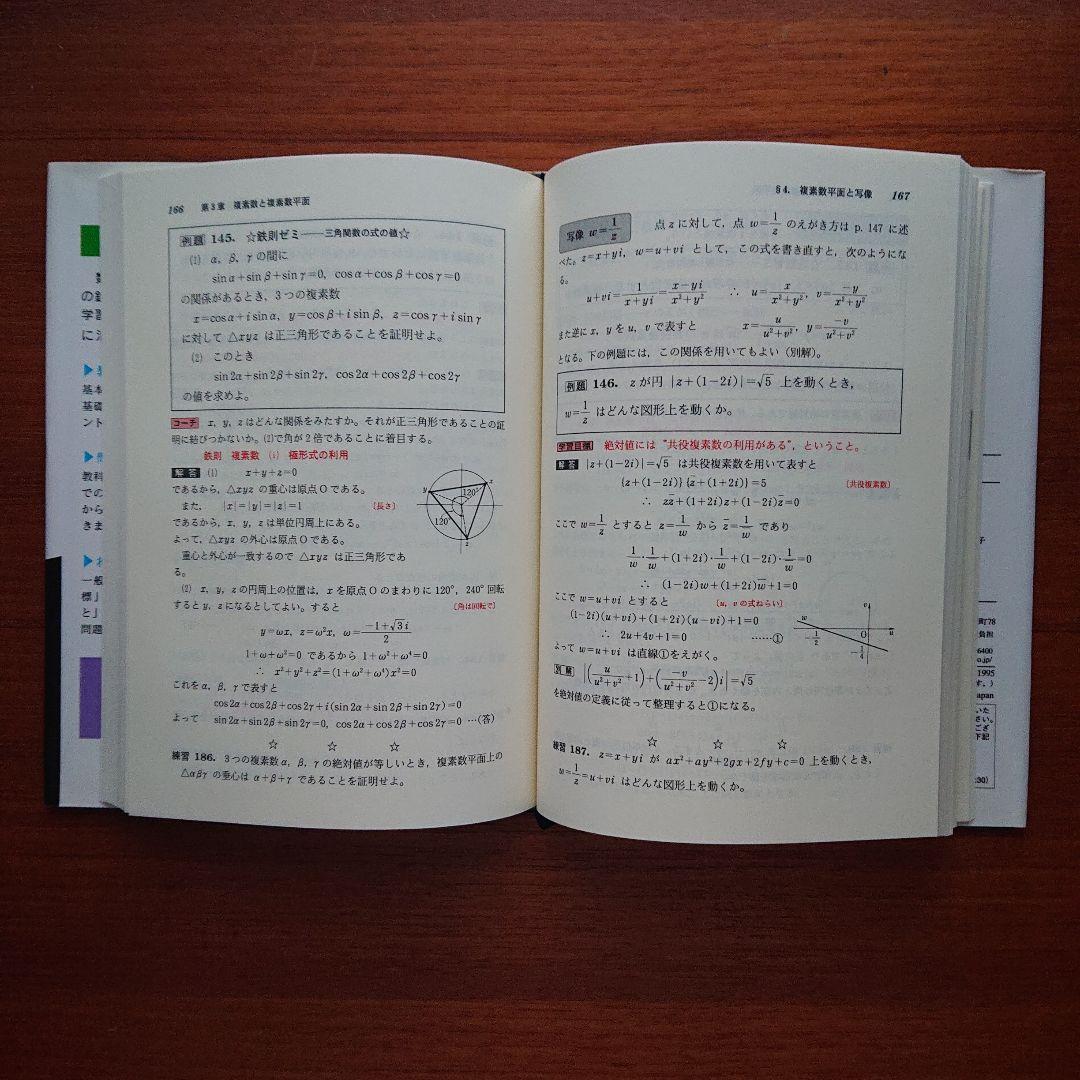 166 第3章 複素数と複素数平面
例題 145. ☆鉄則ゼミ――三角関数の式の値☆
(1) α, β, γ の間に
sinα+sinβ+sinγ=0, cosα+cosβ+cosγ=0
の関係があるとき, 3つの複素数
x=cosα+i sinα, y=cosβ+i sinβ, z=cosγ+i sinγ
に対して △xyz は正三角形であることを証明せよ。
(2) このとき
sin2α+sin2β+sin2γ, cos2α+cos2β+cos2γ
の値を求めよ。
コーチ x, y, z はどんな関係をみたすか。それが正三角形であることの証
明に結びつかないか。(2)で角が2倍であることに着目する。
鉄則 複素数 (i) 極形式の利用
解答 (1) x+y+z=0
であるから, △xyz の重心は原点Oである。
また, |x|=|y|=|z|=1 〔長さ〕
であるから, x, y, z は単位円周上にある。
よって, △xyz の外心は原点Oである。
重心と外心が一致するので △xyz は正三角形であ
る。
y x 120° 120° z
(2) x, y, z の円周上の位置は, x を原点Oのまわりに 120°, 240° 回転
すると y, z になるとしてよい。すると 〔角は回転で〕
y=ωx, z=ω²x, ω=(-1+√3 i)/2
1+ω+ω²=0 であるから 1+ω²+ω⁴=0
∴ x²+y²+z²=(1+ω²+ω⁴)x²=0
これを α, β, γ で表すと
cos2α+cos2β+cos2γ+i(sin2α+sin2β+sin2γ)=0
よって sin2α+sin2β+sin2γ=0, cos2α+cos2β+cos2γ=0 …(答)
☆ ☆ ☆
練習 186. 3つの複素数 α, β, γ の絶対値が等しいとき, 複素数平面上の
△αβγ の垂心は α+β+γ であることを証明せよ。
§4. 複素数平面と写像 167
写像 w=1/z 点 z に対して, 点 w=1/z のえがき方は p. 147 に述
べた。z=x+yi, w=u+vi として, この式を書き直すと, 次のようにな
る。
u+vi=1/(x+yi)=(x-yi)/(x²+y²) ∴ u=x/(x²+y²), v=-y/(x²+y²)
また逆に x, y を u, v で表すと x=u/(u²+v²), y=-v/(u²+v²)
となる。下の例題には, この関係を用いてもよい(別解)。
例題 146. z が円 |z+(1-2i)|=√5 上を動くとき,
w=1/z はどんな図形上を動くか。
学習目標 絶対値には“共役複素数の利用がある”, ということ。
解答 |z+(1-2i)|=√5 は共役複素数を用いて表すと
{z+(1-2i)}{z̄+(1+2i)}=5 〔共役複素数〕
∴ zz̄+(1+2i)z+(1-2i)z̄=0
ここで w=1/z とすると z=1/w から z̄=1/w̄ であり
1/w・1/w̄+(1+2i)・1/w+(1-2i)・1/w̄=0
∴ (1-2i)w+(1+2i)w̄+1=0
ここで w=u+vi とすると 〔u, v の式ねらい〕
(1-2i)(u+vi)+(1+2i)(u-vi)+1=0
∴ 2u+4v+1=0 ……①
よって w=u+vi は直線①をえがく。
w v u -1/2 -1/4
別解 |(u/(u²+v²)+1)+(-v/(u²+v²)-2)i|=√5
を絶対値の定義に従って整理すると①になる。
☆ ☆ ☆
練習 187. z=x+yi が ax²+ay²+2gx+2fy+c=0 上を動くとき,
w=1/z=u+vi はどんな図形上を動くか。
の
学習
に
基本
基礎
ント
教科
での
から
きま
一般
標」
と」
問題
町78
負担
6400
o.jp/
1995
す。)
apan
いた
さい。
ござ
下記
:30)